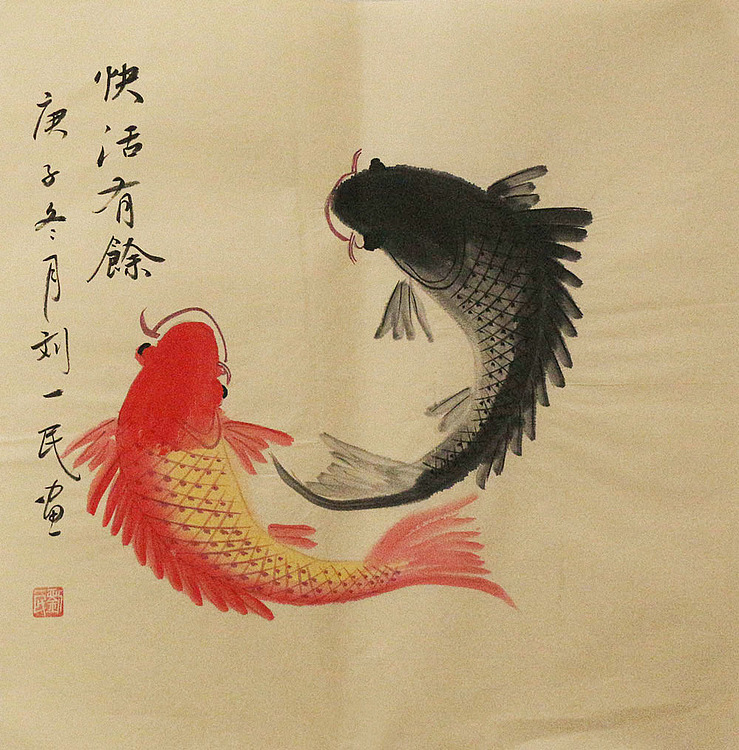 快活有餘
庚子冬月刘一民画